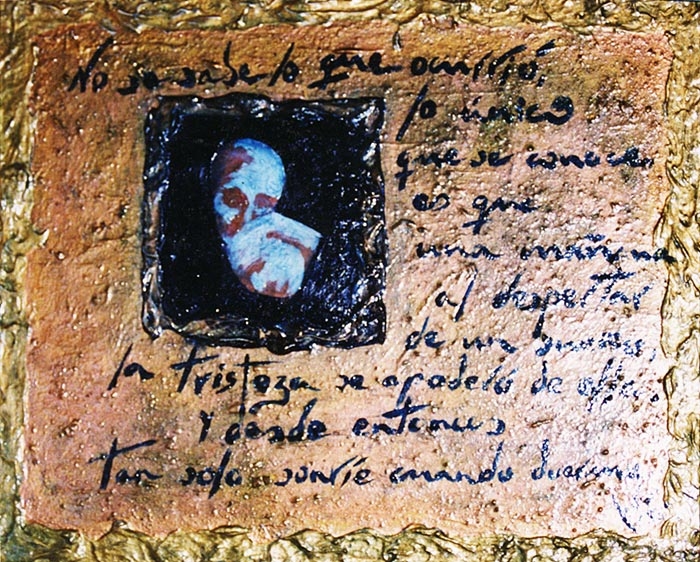 No se sabe lo que ocurrió,
lo único
que se conoce
es que
una mañana
al despertar
de un sueño,
la tristeza se apoderó de ella,
y desde entonces
tan solo sonríe cuando duerme